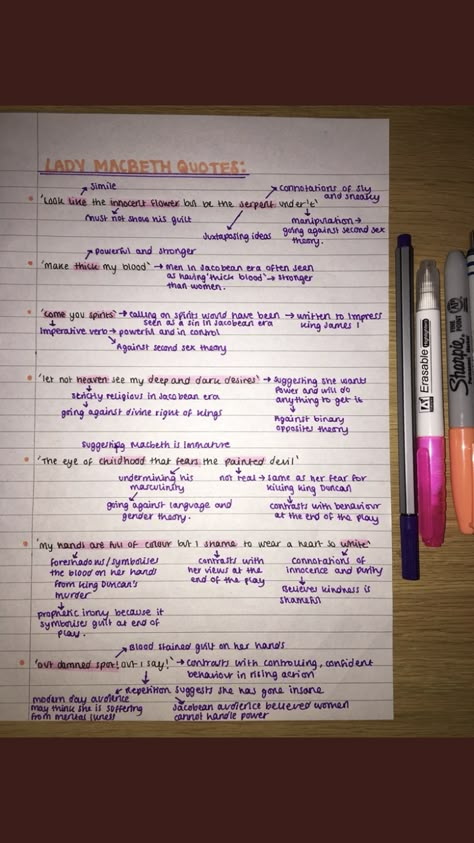 LADY MACBETH QUOTES:
simile
connotations of sly and sneaky
'Look like the innocent flower but be the serpent under't'
must not show his guilt
Juxtaposing ideas
manipulation → going against second sex theory.
powerful and stronger
'make thick my blood' → men in Jacobean era often seen as having 'thick blood' → stronger than women.
'come you spirits' → calling on spirits would have been seen as a sin in Jacobean era → written to impress King James I
Imperative verb → powerful and in control
Against second sex theory
'let not heaven see my deep and dark desires' → suggesting she wants power and will do anything to get it
strictly religious in Jacobean era
going against divine right of kings
Against binary opposites theory
suggesting Macbeth is immature
'The eye of childhood that fears the painted devil'
undermining his masculinity
going against language and gender theory.
not real → same as her fear for killing King Duncan
contrasts with behaviour at the end of the play
'my hands are full of colour but I shame to wear a heart so white'
foreshadows/symbolises the blood on her hands from King Duncan's murder
prophetic irony because it symbolises guilt at end of play.
contrasts with her views at the end of the play
connotations of innocence and purity
Believes kindness is shameful
Blood stained guilt on her hands
'out damned spot! out I say!' → contrasts with controlling, confident behaviour in rising action
Repetition suggests she has gone insane
modern day audience may think she is suffering from mental illness
Jacobean audience believed women cannot handle power
Erasable
Sharpie